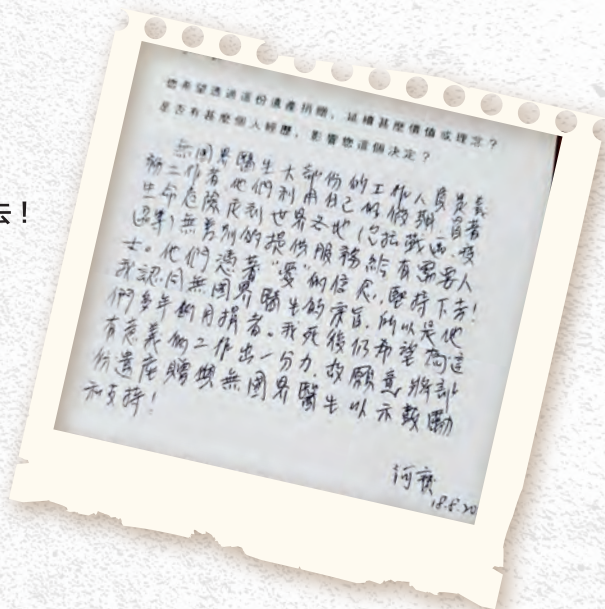 去！
您希望透過這份遺產捐贈，延續甚麼價值或理念？
是否有甚麼個人經歷，影響您這個決定？
無國界醫生大部份的工作人員是義
務工作者他們利用自己的假期冒着
生命危險走到世界各地（包括戰區、疫
區等）無分別的提供服務給有需要人
士。他們憑著“愛”的信念，堅持下去！
我認同無國界醫生的宗旨，所以是他
們多年的月捐者。我死後仍希望為這
有意義的工作出一分力，故願意將部
份遺產贈與無國界醫生以示鼓勵
和支持！
18.8.20